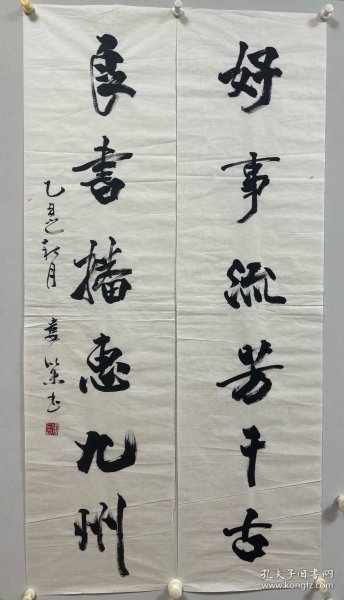 好事流芳千古
良书播惠九州
乙丑秋月
孔夫子旧书网
www.kongfz.com